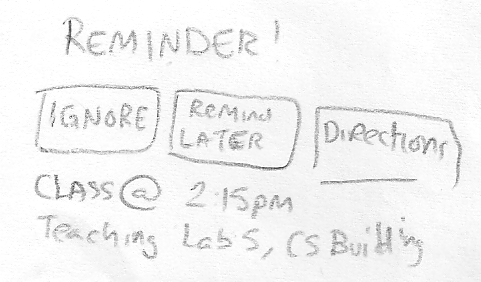 REMINDER!
IGNORE REMIND LATER Directions
CLASS @ 2:15pm
Teaching Lab 5, CS Building